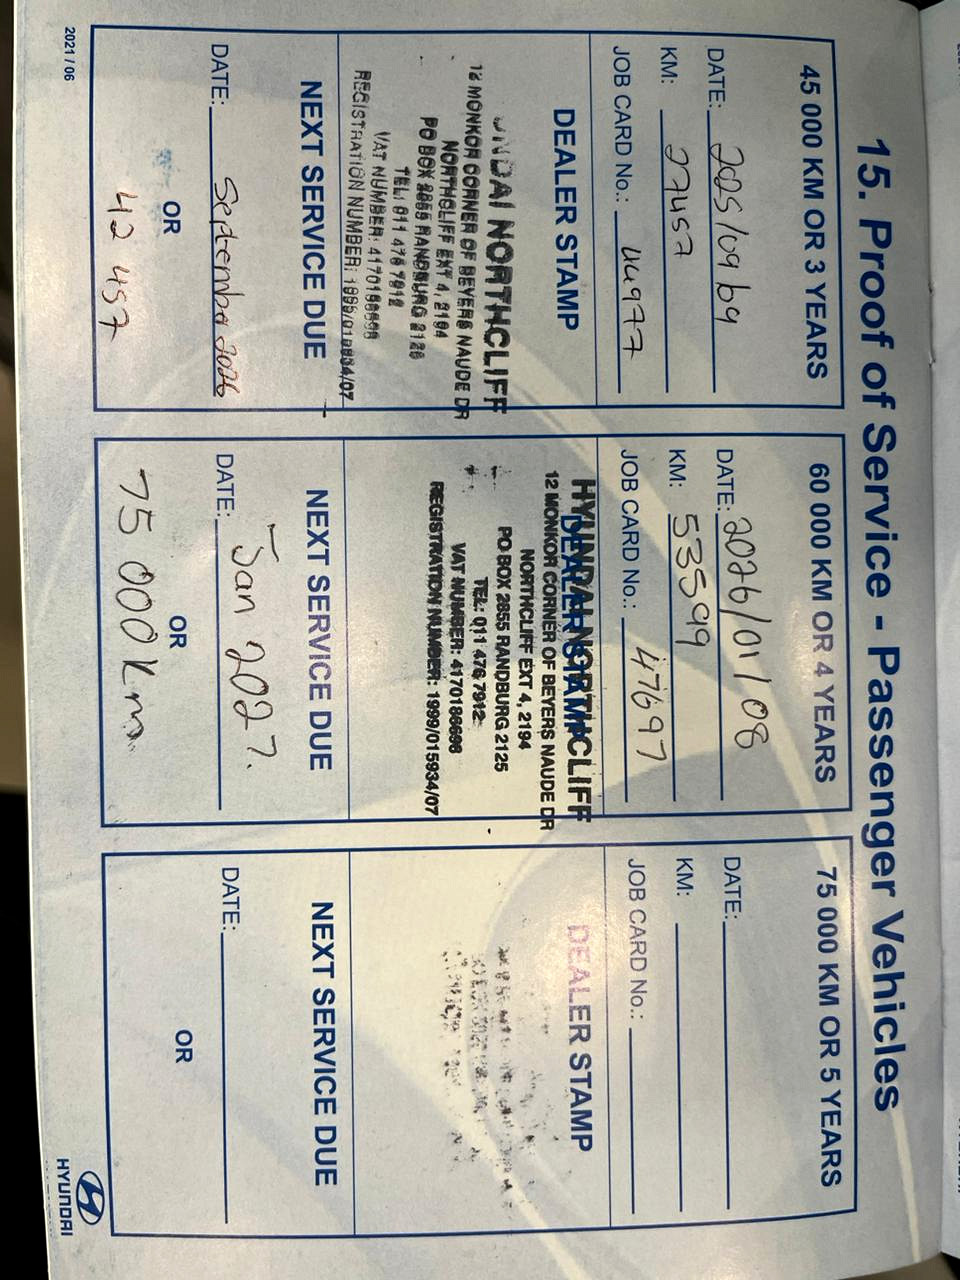 15. Proof of Service - Passenger Vehicles
45 000 KM OR 3 YEARS
DATE: 2025/09/09
KM: 27457
JOB CARD No.: 44977
DEALER STAMP
NORTHCLIFF
12 MONKOR CORNER OF BEYERS NAUDE DR
NORTHCLIFF EXT 4, 2194
PO BOX 2855 RANDBURG 2125
TEL: 011 476 7912
VAT NUMBER: 4170186698
REGISTRATION NUMBER: 1999/015934/07
NEXT SERVICE DUE
DATE: September 2026
OR
42 457
60 000 KM OR 4 YEARS
DATE: 2026/01/08
KM: 53599
JOB CARD No.: 47697
DEALER STAMP
HYUNDAI NORTHCLIFF
12 MONKOR CORNER OF BEYERS NAUDE DR
NORTHCLIFF EXT 4, 2194
PO BOX 2855 RANDBURG 2125
TEL: 011 476 7912
VAT NUMBER: 4170186698
REGISTRATION NUMBER: 1999/015934/07
NEXT SERVICE DUE
DATE: Jan 2027.
OR
75 000 Km.
75 000 KM OR 5 YEARS
DATE:
KM:
JOB CARD No.:
DEALER STAMP
NEXT SERVICE DUE
DATE:
OR
2021 / 06
HYUNDAI